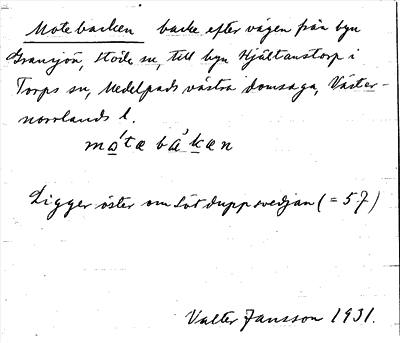 Motebacken backe efter vägen från byn
Gransjön, Stöde sn, till byn Hjältanstorp i
Torps sn, Medelpads västra domsaga, Väster-
norrlands l.
mo̲´tæ bà̲k̲æn
Ligger öster om Löt duppsvedjan (= 57)
Valter Jansson 1931.